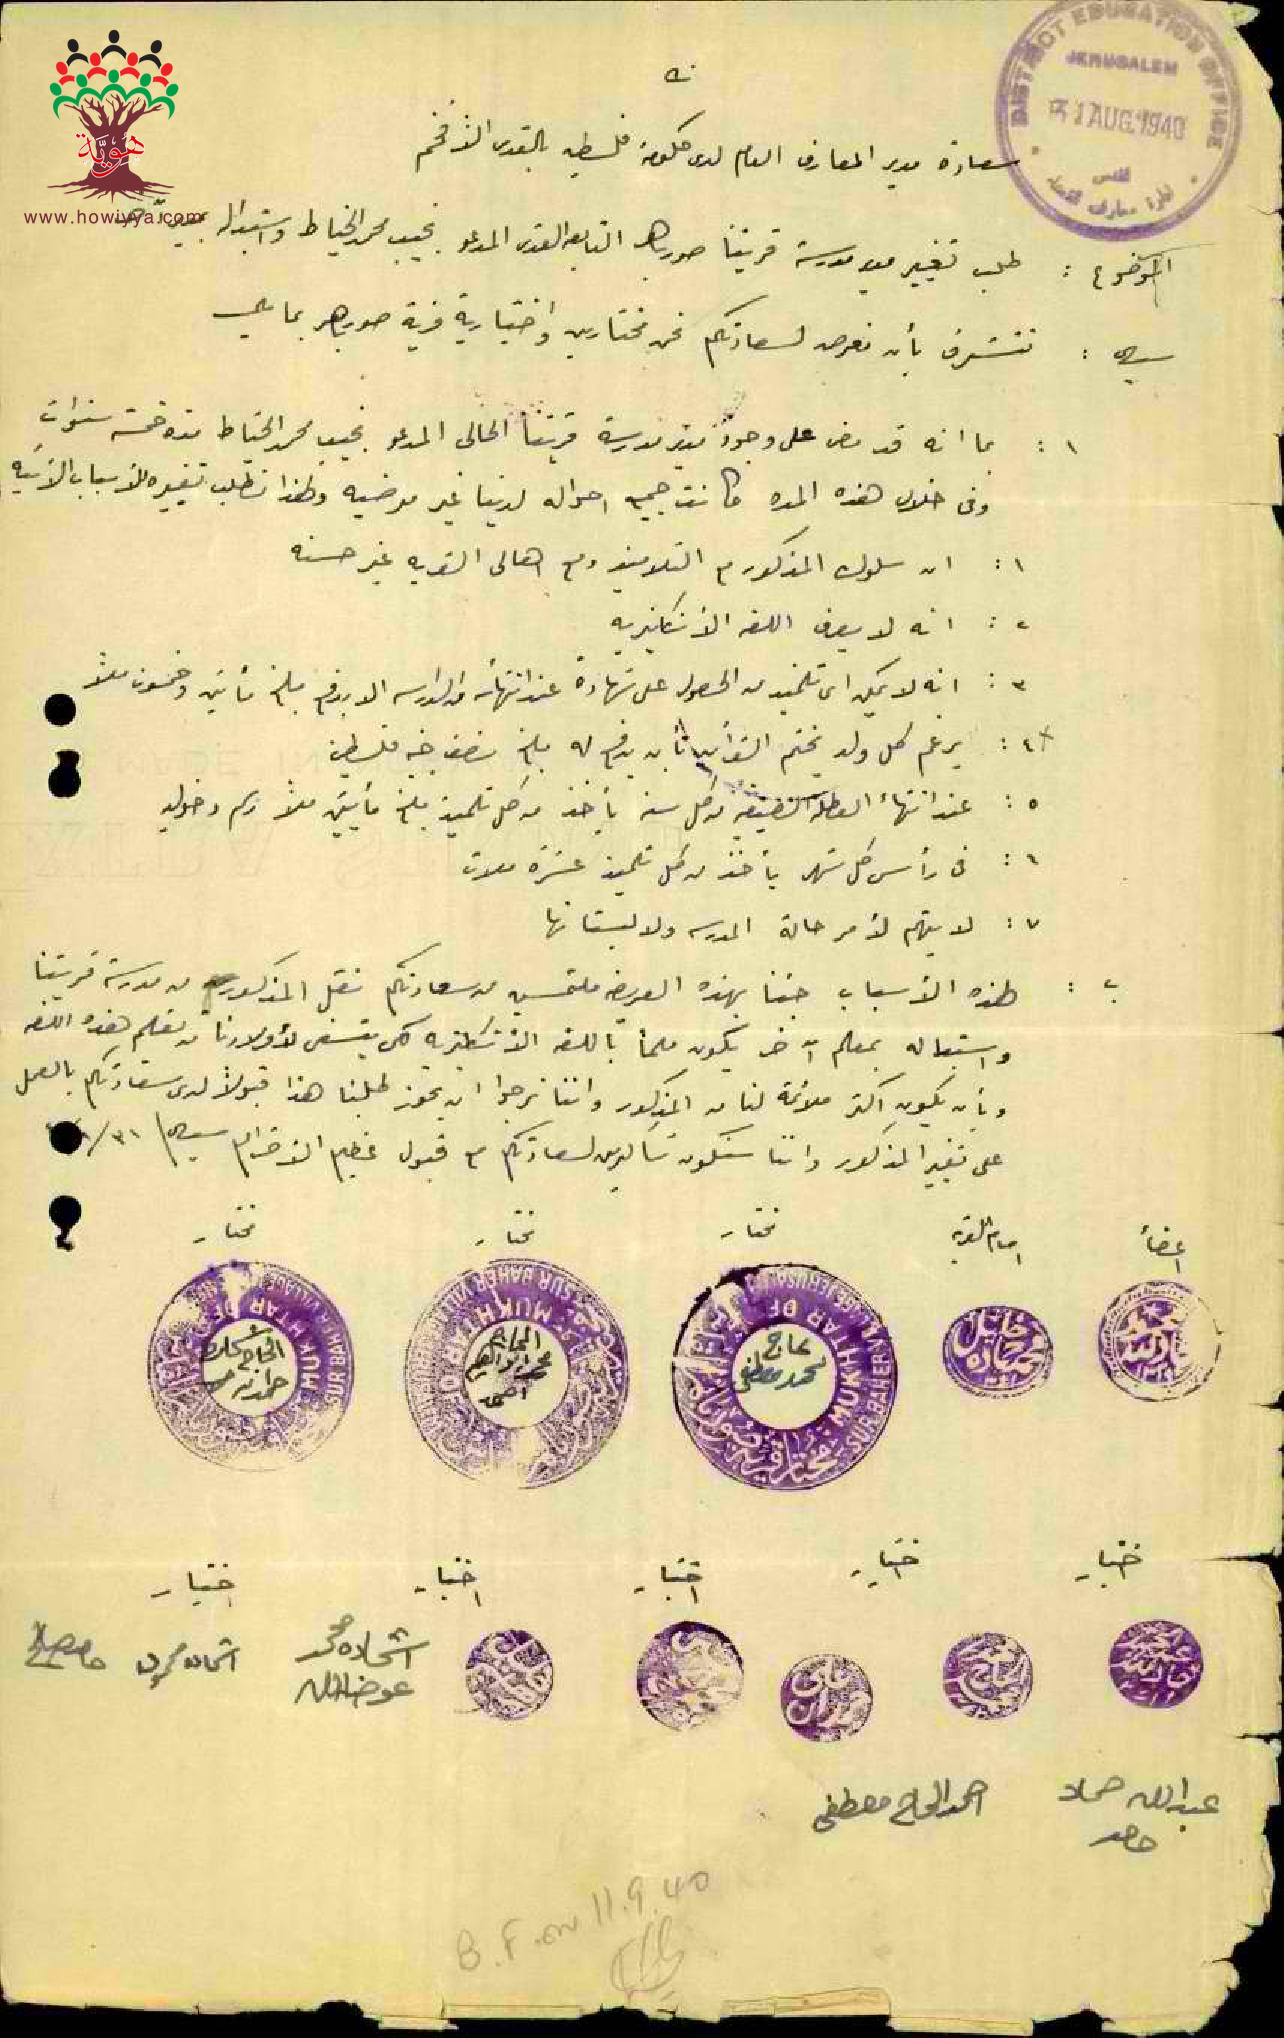 هويّة
www.howiyya.com
DISTRICT EDUCATION OFFICE
JERUSALEM
31 AUG 1940
القدس
سعادة مدير المعارف العام لدى حكومة فلسطين بالقدس الأفخم
الموضوع : طلب تغيير مدير مدرسة قريتنا صورباهر التابعه القدس المدعو نجيب محمد الخياط واستبداله بغيره
سيدي : نتشرف بأن نعرض لسعادتكم نحن مختارين واختيارية قرية صورباهر بما يلي
١ : بما انه قد مضى على وجود مدير مدرسة قريتنا الحالى المدعو نجيب محمد الخياط مدة خمسة سنوات
وفى خلال هذه المده كانت جميع احواله لدينا غير مرضيه ولهذا نطلب تغييره للأسباب الأتيه
١ : ان سلوك المذكور مع التلاميذ ومع اهالى القريه غير حسنه
٢ : انه لا يعرف اللغه الأنكليزيه
٣ : انه لا يمكن اى تلميذ من الحصول على شهادة عند انتهائه من المدرسه الا بدفع مبلغ مأتين وخمسون ملاً
٤ : يرغم كل ولد يختم القرأن بأن يدفع له مبلغ نصف جنيه فلسطينى
٥ : عند انتهاء العطله الصيفيه من كل سنه يأخذ من كل تلميذ مبلغ مأتين ملاً رسم دخوليه
٦ : فى رأس كل شهر يأخذ من كل تلميذ عشرة ملات
٧ : لا يهتم لأمر حالة المدرسه ولا لبستانها
ب : لهذه الأسباب جئنا بهذه العريضه ملتمسين من سعادتكم نقل المذكور من مدرسة قريتنا
واستبداله بمعلم آخر يكون ملماً باللغه الأنكليزيه كى يتسنى لأولادنا من تعلم هذه اللغه
وبأن يكون اكثر ملائمة لنا من المذكور واننا نرجوا ان يحوز طلبنا هذا قبولاً لدى سعادتكم بالعمل
على تغيير المذكور واننا سنكون شاكرين لسعادتكم مع قبول عظيم الأحترام سيدي ٣١/
اعضاء
امام القريه
مختار
مختار
مختار
MUKHTAR OF
SUR BAHER VILLAGE JERUSALEM
مختار قرية صورباهر
الحاج محمد مصطفى
MUKHTAR OF
SUR BAHER VILLAGE
الحاج محمد ابراهيم
MUKHTAR OF
SUR BAHER VILLAGE
الحاج
اختيار
اختيار
اختيار
اختيار
اختيار
اشحاده محمد
عوض الله
عبدالله حماد
حامد
احمد الحاج مصطفى
B.F. on 11.9.40